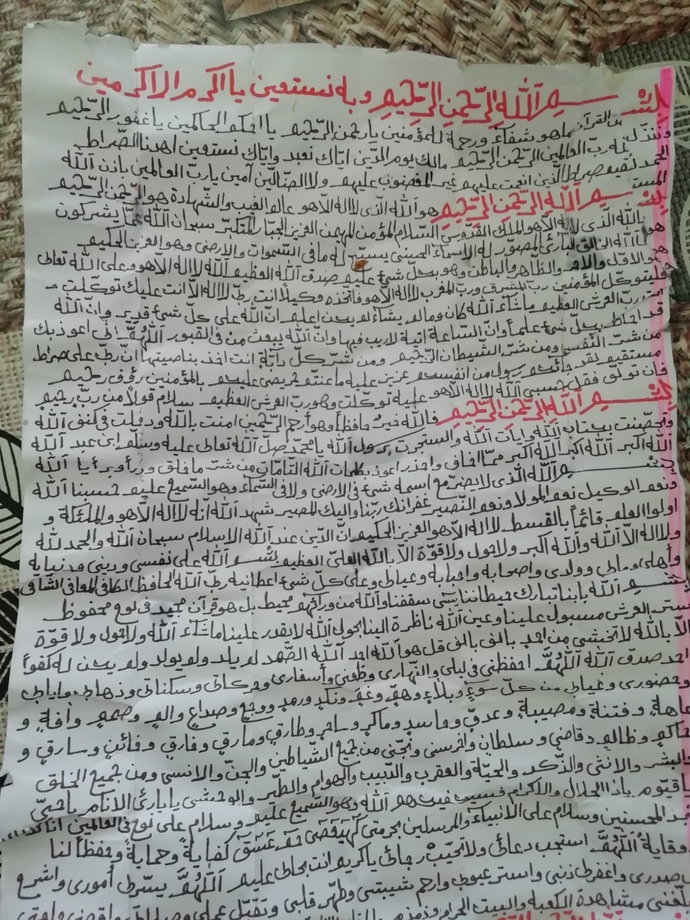 بِسْـــمِ ٱللّٰهِ الرَّحْمٰنِ الرَّحِيْمِ وبه نستعين يا اكرم الاكرمين
وننزل من القرآن ما هو شفاء ورحمة للمؤمنين يا رحمن الرّحيم يا احكم الحاكمين يا غفور الرّحيم
الحمد لله ربّ العالمين الرّحمن الرّحيم مالك يوم الدّين ايّاك نعبد وايّاك نستعين اهدنا الصّراط
المستقيم صراط الّذين انعمت عليهم غير المغضوب عليهم ولا الضّآلّين آمين يا ربّ العالمين باذن الله
بِسْـــمِ ٱللّٰهِ الرَّحْمٰنِ الرَّحِيْمِ هو الله الّذى لا اله الّا هو عالم الغيب والشّهادة هو الرّحمن الرّحيم
هو الله الّذى لا اله الّا هو الملك القدّوس السّلام المؤمن المهيمن العزيز الجبّار المتكبّر سبحان الله عمّا يشركون
هو الله الخالق البارئ المصوّر له الاسماء الحسنى يسبّح له ما فى السّموات والارض وهو العزيز الحكيم
هو الاوّل والآخر والظّاهر والباطن وهو بكلّ شئ عليم صدق الله العظيم الله لا اله الّا هو وعلى الله تعالى
فليتوكّل المؤمنين ربّ المشرق وربّ المغرب لا اله الّا هو فاتّخذه وكيلا انت ربّى لا اله الّا انت عليك توكّلت
وانت ربّ العرش العظيم ما شاء الله كان وما لم يشاء لم يكن اعلم انّ الله على كلّ شئ قدير وانّ الله
قد احاط بكلّ شئ علما وانّ السّاعة آتية لا ريب فيها وانّ الله يبعث من فى القبور اللّهمّ انّى اعوذ بك
من شرّ النّفسى ومن شرّ الشّيطان الرّجيم ومن شرّ كلّ دابّة انت آخذ بناصيتها انّ ربّى على صراط
مستقيم لقد جائكم رسول من انفسكم عزيز عليه ما عنتّم حريص عليكم بالمؤمنين رؤف رحيم
فان تولّوا فقل حسبى الله لا اله الّا هو عليه توكّلت وهو ربّ العرش العظيم سلام قولا من ربّ رحيم
بِسْـــمِ ٱللّٰهِ الرَّحْمٰنِ الرَّحِيْمِ فالله خير حافظا وهو ارحم الرّحمين امنت بالله ودخلت فى كنف الله
وتحصّنت بكتاب الله وآيات الله واستجرت برسول الله يا محمّد صلّى الله تعالى عليه وسلّم ابن عبد الله
الله اكبر الله اكبر الله اكبر ممّا اخاف واحذر اعوذ بكلمات الله التّامّات من شرّ ما خلق وذرأ وبرأ يا الله
بســـم الله الّذى لا يضرّ مع اسمه شئ فى الارض ولا فى السّماء وهو السّميع عليم حسبنا الله
ونعم الوكيل نعم المولا ونعم النّصير غفرانك ربّنا واليك المصير شهد الله انّه لا اله الّا هو والملئكة و
اولوا العلم قائما بالقسط لا اله الّا هو العزيز الحكيم انّ الدّين عند الله الاسلام سبحان الله والحمد لله
ولا اله الّا الله والله اكبر ولا حول ولا قوّة الّا بالله العلىّ العظيم بسم الله على نفسى ودينى ودنيايه
واهلى ومالى وولدى واصحابه واحبابه وعيالى وعلى كلّ شئ اعطانيه ربّى الله الحافظ الكافى المعافى الشّافى
بســـم الله بابنا تبارك حيطاننا يسٓ سقفنا والله من ورائهم محيط بل هو قرآن مجيد فى لوح محفوظ
ستر العرش مسبول علينا وعين الله ناظرة الينا بحول الله لا يقدر علينا ما شاء الله ولا حول ولا قوّة
الّا بالله لا نخشى من احد بالف بالف قل هو الله احد الله الصّمد لم يلد ولم يولد ولم يكن له كفوا
احد صدق الله اللّهمّ احفظنى فى ليلى والنّهارى وظعنى واسفارى وحركاتى وسكناتى وذهابى وايابى
وحضورى وغيابى من كلّ سوء وبلاء وهمّ وغمّ ونكد ورمد ووجع وصداع والم وصمم وآفة و
عاهة وفتنة ومصيبة وعدوّ وحاسد وماكر وساحر وطارق ومارق وفارق وخائن وسارق و
حاكم وظالم وقاضى وسلطان واحرسنى ونجّنى من جميع الشّياطين والجنّ والانسى ومن جميع الخلق
والبشر والانثى والذّكد والحيّة والعقرب والدّبيب والهوام والطّير والوحشى يا بارئ الانام يا حىّ
يا قيّوم يا ذا الجلال والاكرام فسيكفيكهم الله وهو السّميع عليم وسلام على نوح فى العالمين انّا كذلك
نجد المحسنين وسلام على الانبياء والمرسلين بحرمتى كهيعص حم عسق كفاية وحماية وحفظا لنا
وقاية اللّهمّ استجب دعائى ولا تخيّب رجائى يا كريم وانت بحالى عليم اللّهمّ يسّرلى امورى واشرح
لى صدرى واغفرلى ذنبى واستر عيوبى وارحم شيبتى وطهّر قلبى وتقبّل عملى
بلّغنى مشاهدة الكعبة والبيت الحرام